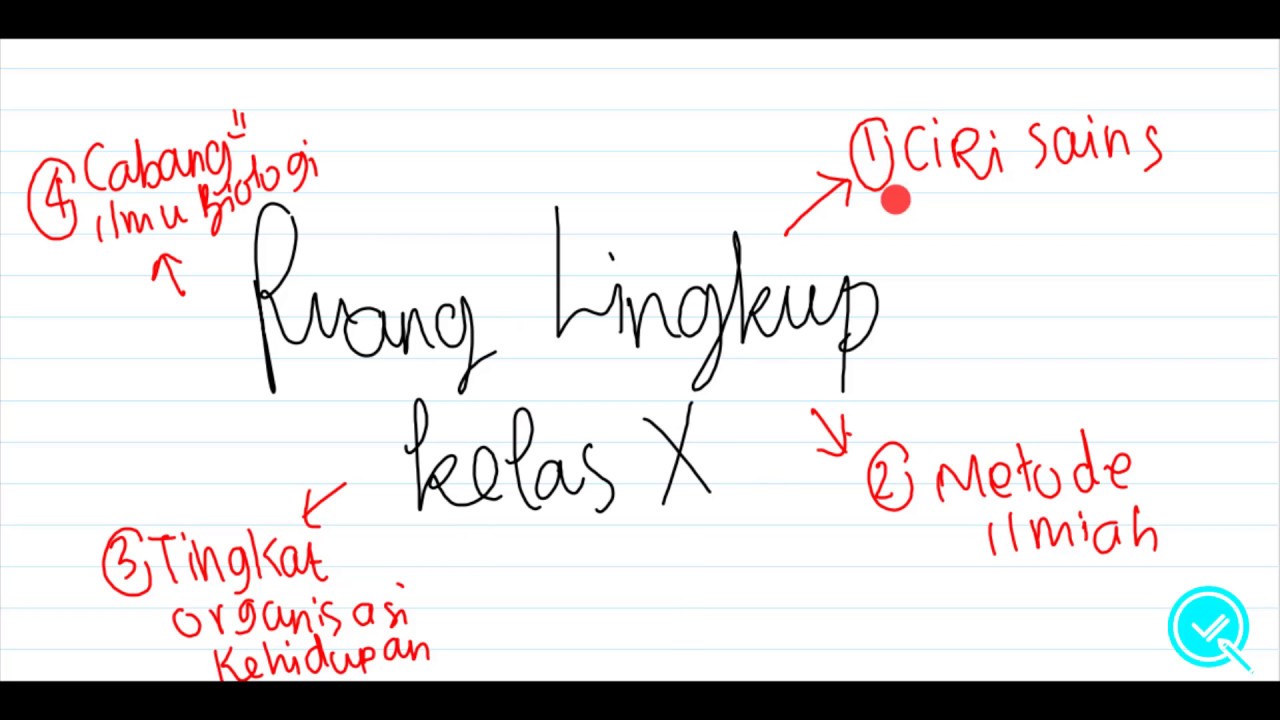 Ruang Lingkup
kelas X
① Ciri sains
② Metode
ilmiah
③ Tingkat
organisasi
Kehidupan
④ Cabang"
ilmu Biologi